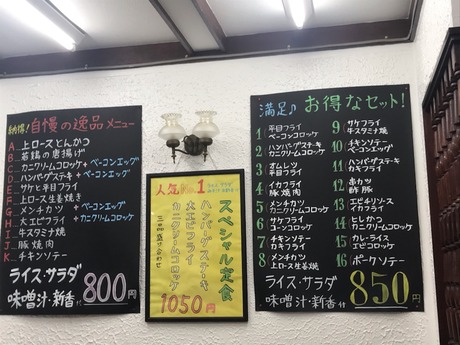 納得! 自慢の逸品 メニュー
A… 上ロースとんかつ
B… 若鶏の唐揚げ
C… カニクリームコロッケ+ベーコンエッグ
D… ハンバーグステーキ+ベーコンエッグ
E… サケと平目フライ
F… 上ロース生姜焼き
G… メンチカツ+ベーコンエッグ
H… 大エビフライ+カニクリームコロッケ
I… 牛スタミナ焼
J… 豚焼肉
K… チキンソテー
ライス・サラダ
味噌汁・新香付 800円
人気No.1
スペシャル定食
ハンバーグステーキ
大エビフライ
カニクリームコロッケ
三品盛り合わせ
1050円
満足♪ お得なセット!
1 平目フライ
ベーコンコロッケ
2 ハンバーグステーキ
カニクリームコロッケ
3 オムレツ
チキンフライ
4 イカフライ
豚汁
5 メンチカツ
カニクリームコロッケ
6 サケフライ
コーンコロッケ
7 チキンソテー
カキフライ
8 メンチカツ
上ロース生姜焼
9 サケフライ
牛スタミナ焼
10 チキンソテー
ベーコンエッグ
11 ハンバーグステーキ
カキフライ
12 串カツ
酢豚
13 エビ&ホタテ
イカフライ
14 ヒレカツ
カニクリームコロッケ
15 カレーライス
エビコロッケ
16 ポークソテー
ライス・サラダ
味噌汁・新香付 850円